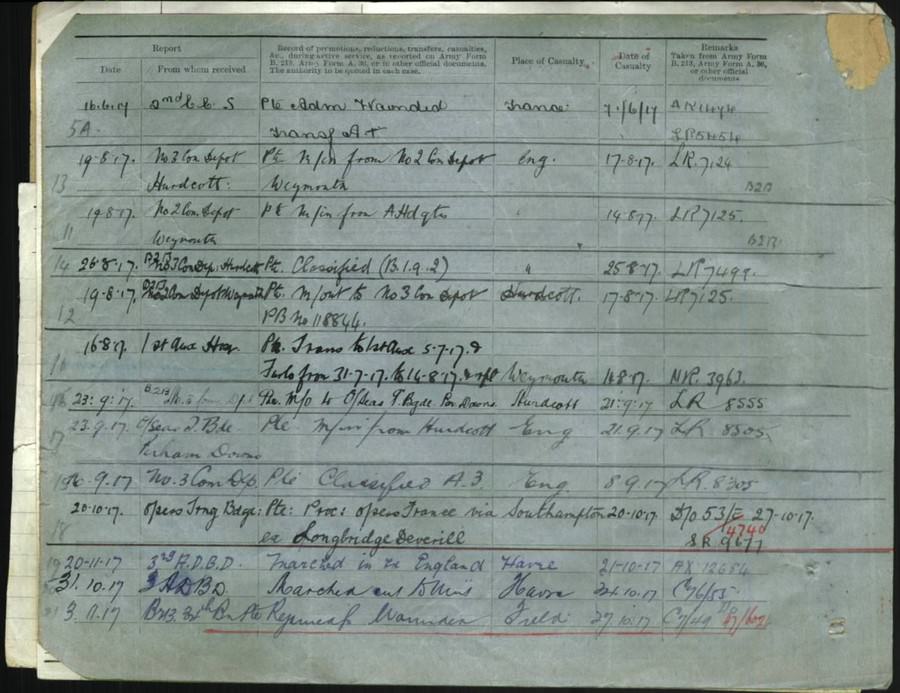 Report
Record of promotions, reductions, transfers, casualties, &c., during active service, as reported on Army Form B. 213, Army Form A. 36, or in other official documents. The authority to be quoted in each case.
Place of Casualty
Date of Casualty
Remarks
Taken from Army Form B. 213, Army Form A. 36, or other official documents
Date
From whom received
16.6.17 2nd C.C.S Pte Adm Wounded France 7/6/17
5A. Transf A T LR5454
19-8-17. No 3 Con Depot Pte M/in from No 2 Con Depot Eng. 17-8-17. LR.7124
13 Hurdcott: Weymouth B2B
19-8-17. No 2 Con. Depot Pte M/in from A Hdqts " 14.8.17. LR7125.
11 Weymouth B2B
14 26-8-17. No 3 Con Dep. Hurdcott Pte. Classified (B.1.a.2) " 25.8.17. LR7499.
19-8-17. No 2 Con Depot Weymouth Pte. M/out to No 3 Con depot Hurdcott. 17-8-17. LR7125.
12 PB No 118844.
16-8-17. 1st Aux Hosp Pte. Trans to 1st Aux 5-7-17. &
Furlo from 31-7-17. to 14-8-17. Weymouth 14.8.17. NR. 3963.
23.9.17. B213 Pte. M/O to O/Seas T. Bgde Per. Downs Hurdcott 21.9.17 LR 8555
17 23.9.17. O/Seas T. Bde Pte M/in from Hurdcott Eng 21.9.17 LR 8505
Perham Downs
9.17 No. 3 Com Dep. Pte Classified A.3 Eng 8 9.17 LR.8305
20-10-17. O/seas Trng Bdge: Pte: Proc: o/seas France via Southampton 20-10-17. D/O 53/ 27-10-17.
4740
18 ex Longbridge Deverill SR 9677
19 20-11-17 3rd A.D.B.D. Marched in ex England Havre 21-10-17 AX 12684
31.10.17 3 A.D.B.D. Marched out to Unit Havre 24.10.17 C76/55
3.11.17 B213 34th Bn Pte Rejoined Wounded Field 27.10.17 C7/49